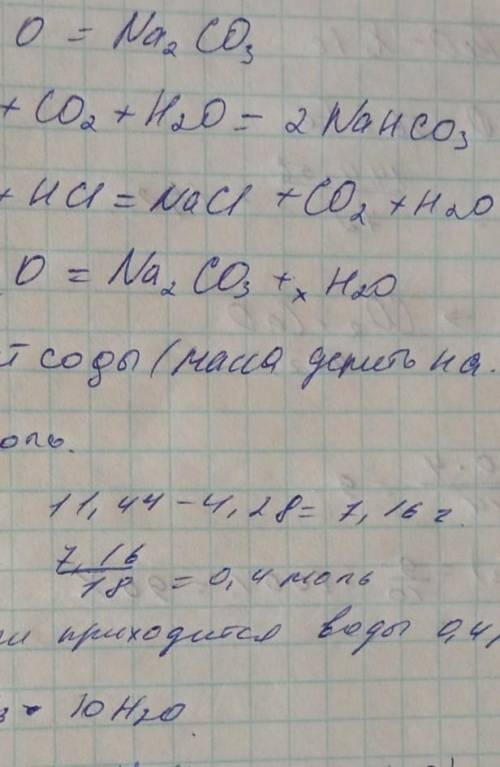 O = Na₂CO₃
+ CO₂ + H₂O = 2NaHCO₃
+ HCl = NaCl + CO₂ + H₂O
O = Na₂CO₃ + xH₂O
соды (масса делить на
оль.
11,44 - 4,28 = 7,16 г.
7,16
18 = 0,4 моль
приходится воды 0,4
3 · 10H₂O